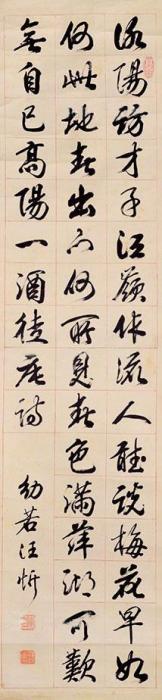 洛陽訪才子江嶺作流人聽說梅花早如
何此地春出門何所見春色滿萍湖可歎
無自己高陽一酒徒唐詩
幼若汪忻